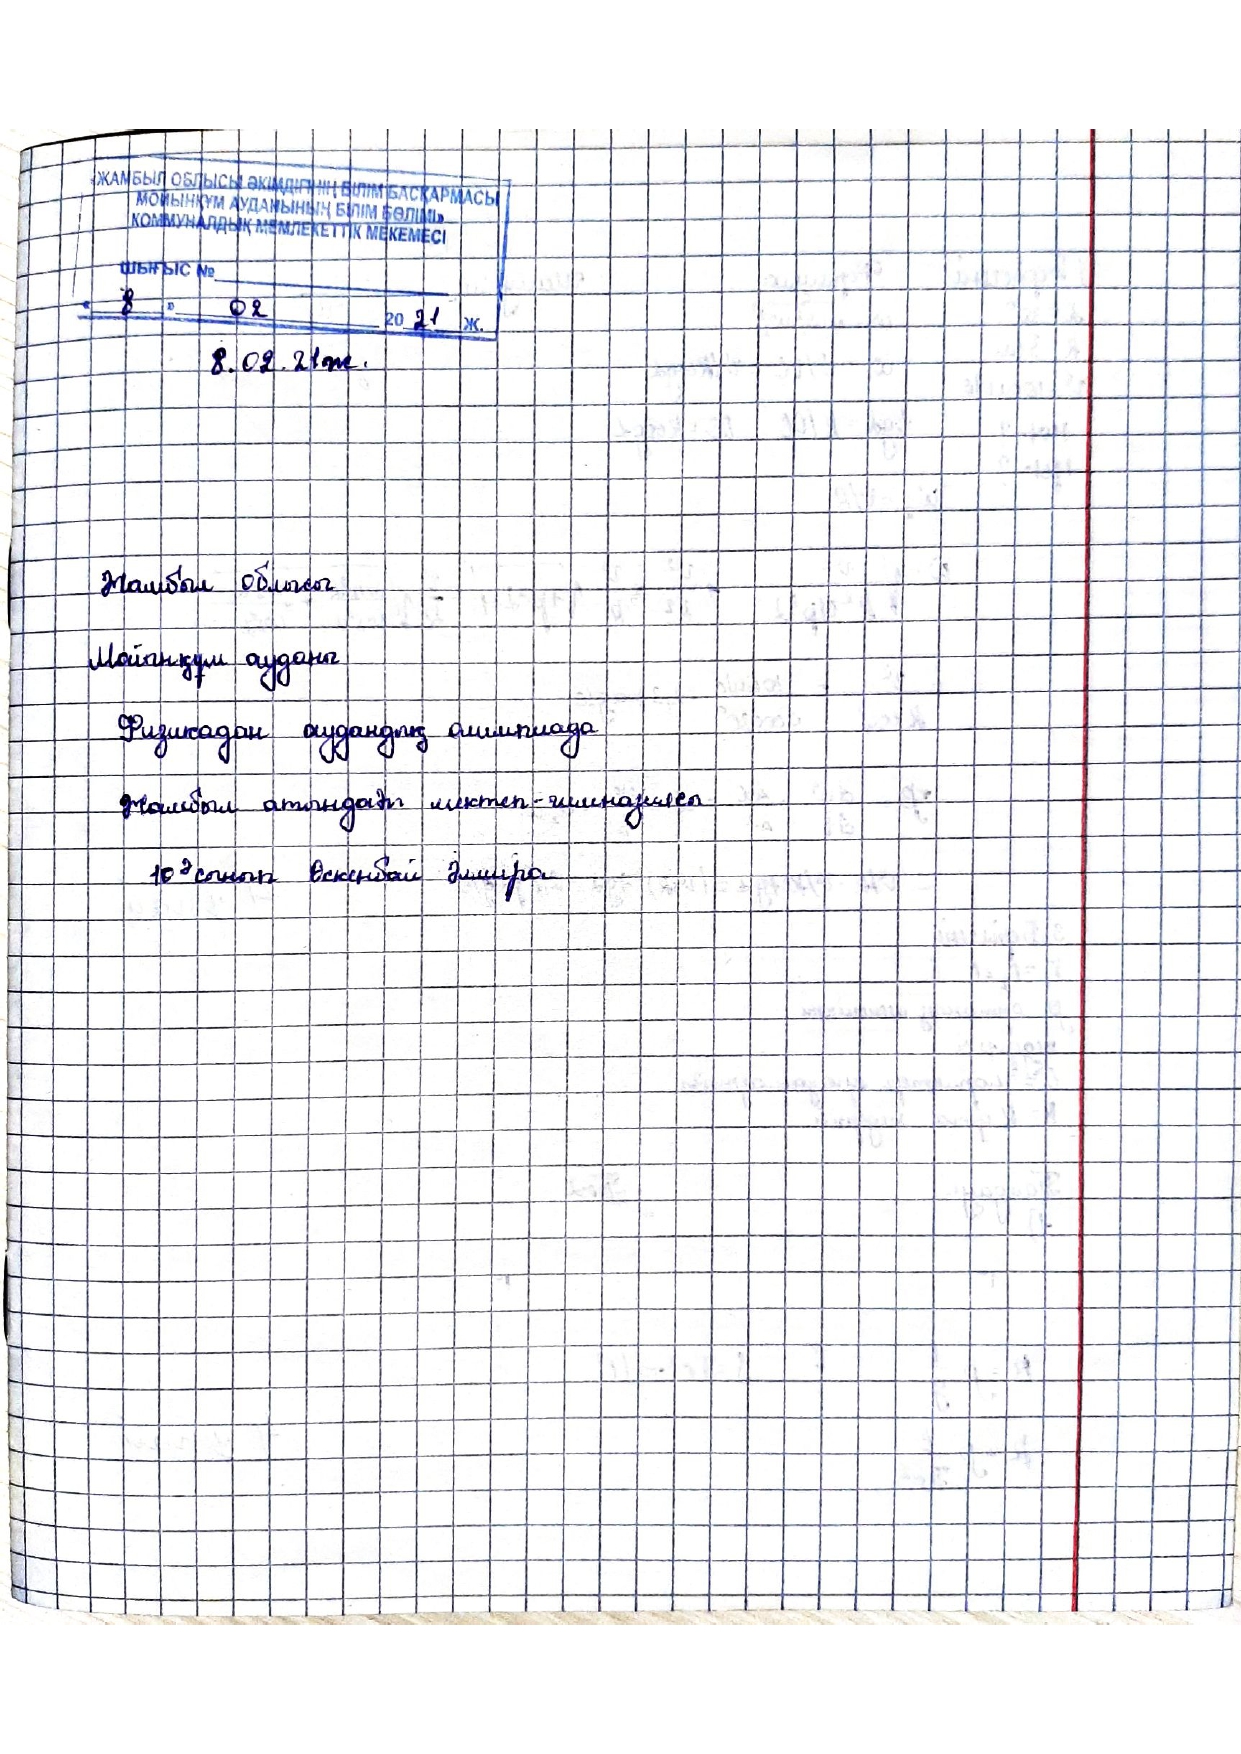 «ЖАМБЫЛ ОБЛЫСЫ ӘКІМДІГІНІҢ БІЛІМ БАСҚАРМАСЫ
МОЙЫНҚҰМ АУДАНЫНЫҢ БІЛІМ БӨЛІМІ»
КОММУНАЛДЫҚ МЕМЛЕКЕТТІК МЕКЕМЕСІ
ШЫҒЫС №
« 8 » 02 20 21 Ж.
8.02.21ж.
Жамбыл облысы
Мойынқұм ауданы
Физикадан аудандық олимпиада
Жамбыл атындағы мектеп-гимназиясы
10 сынып Өскенбай Әлмира